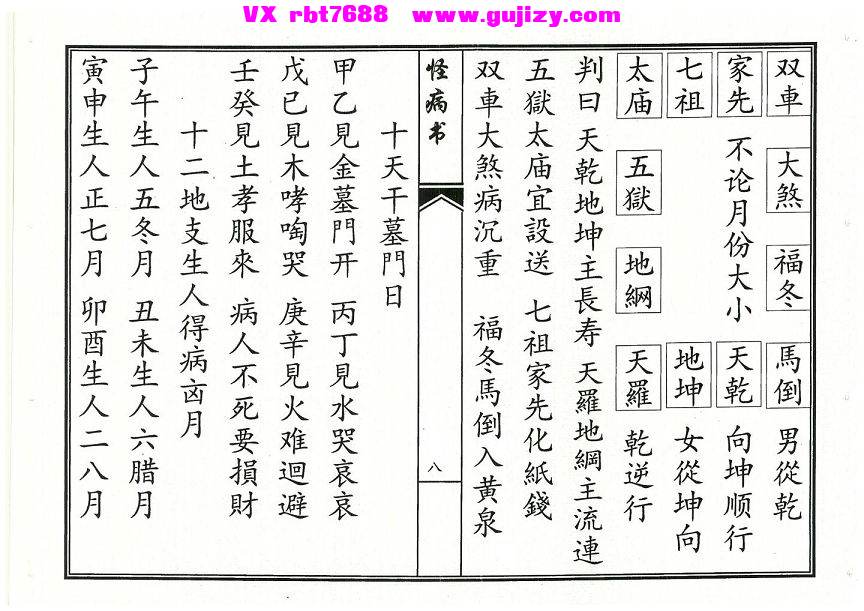 VX rbt7688 www.gujizy.com
双車 大煞 福冬 馬倒 男從乾
家先 不论月份大小 天乾 向坤顺行
七祖 地坤 女從坤向
太庙 五獄 地綱 天羅 乾逆行
判曰 天乾地坤主長寿 天羅地綱主流連
五獄太庙宜設送 七祖家先化紙錢
双車大煞病沉重 福冬馬倒入黄泉
怪病书
八
十天干墓門日
甲乙見金墓門开 丙丁見水哭哀哀
戊已見木哮啕哭 庚辛見火难迴避
壬癸見土孝服來 病人不死要損財
十二地支生人得病凶月
子午生人五冬月 丑未生人六腊月
寅申生人正七月 卯酉生人二八月